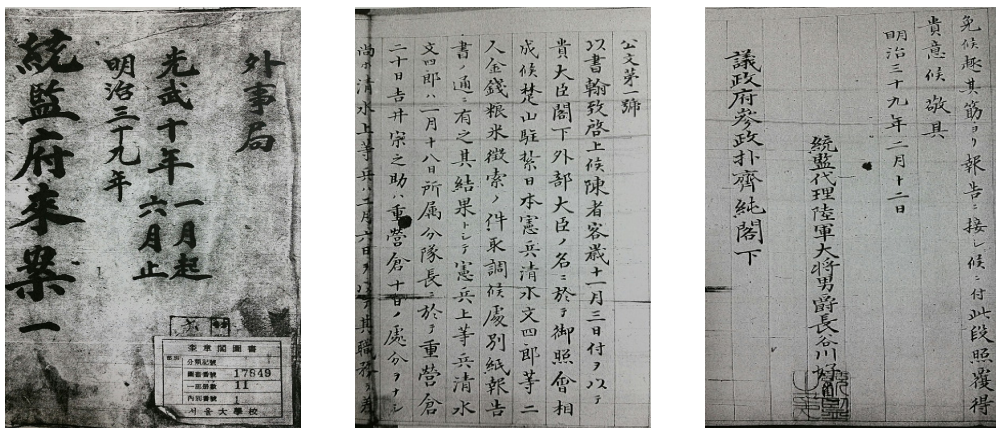 外事局
光武十年 一月起
明治三十九年 六月止
統監府来案 一
奎章閣圖書
分類記號
圖書番號 17849
一部冊數 11
內別番號 1
서울大學校
公文第一號
以書翰致啓上候陳者客歲十一月三日付ヲ以テ
貴大臣閣下外部大臣ノ名ニ於テ御照會相
成候楚山駐紮日本憲兵清水文四郎等二
人金錢粮米徵索ノ件取調候處別紙報告
書ノ通ニ有之其結果トシテ憲兵上等兵清水
文四郎ハ一月十八日所属分隊長ニ於テ重營倉
二十日吉井宗之助ハ重營倉十日ノ處分ヲナシ
尚ホ清水上等兵ハ二月六日ヲ以テ其職務ヲ差
免候趣其筋ヨリ報告ニ接シ候ニ付此段照覆得
貴意候 敬具
明治三十九年二月十二日
統監代理陸軍大將男爵長谷川好道
議政府參政朴齊純閣下